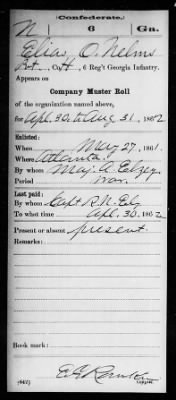 Confederate.
N 6 Ga.
Elias O. Nelms
Pvt., Co. H, 6 Reg't Georgia Infantry.
Appears on
Company Muster Roll
of the organization named above,
for Apl. 30 to Aug 31, 1862
Enlisted:
When May 27, 1861.
Where Atlanta
By whom Maj. A. Elzey
Period War.
Last paid:
By whom Capt R. N. Ely
To what time Apl. 30, 1862
Present or absent present.
Remarks:
Book mark:
(642)
Copyist.